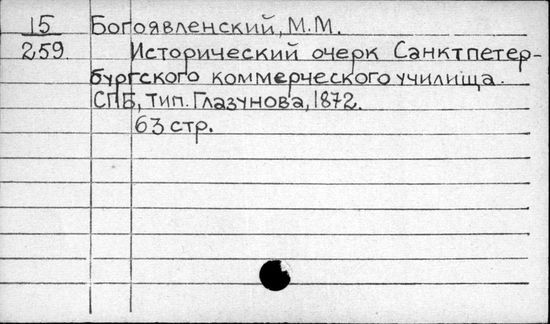 15 Богоявленский, М.М.
259. Исторический очерк Санктпетер-
бургского коммерческого училища.
СПБ, тип. Глазунова, 1872.
63 стр.